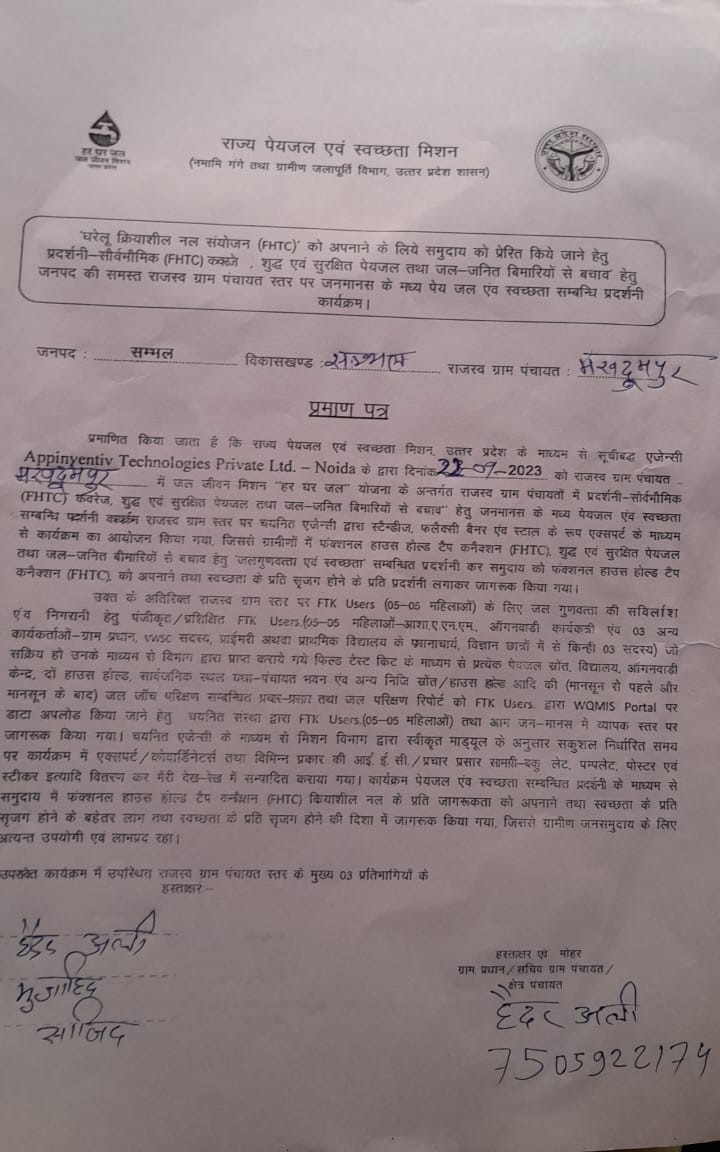 हर घर जल
जल जीवन मिशन
उत्तर प्रदेश सरकार
राज्य पेयजल एवं स्वच्छता मिशन
(नमामि गंगे तथा ग्रामीण जलापूर्ति विभाग, उत्तर प्रदेश शासन)
'घरेलू क्रियाशील नल संयोजन (FHTC)' को अपनाने के लिये समुदाय को प्रेरित किये जाने हेतु
प्रदर्शनी–सौर्वभौमिक (FHTC) कवरेज , शुद्ध एवं सुरक्षित पेयजल तथा जल–जनित बिमारियों से बचाव' हेतु
जनपद की समस्त राजस्व ग्राम पंचायत स्तर पर जनमानस के मध्य पेय जल एंव स्वच्छता सम्बन्धि प्रदर्शनी
कार्यक्रम।
जनपद : सम्भल विकासखण्ड : राजस्व ग्राम पंचायत : मखदूमपुर
प्रमाण पत्र
प्रमाणित किया जाता है कि राज्य पेयजल एवं स्वच्छता मिशन, उत्तर प्रदेश के माध्यम से सूचीबद्ध एजेन्सी
Appinventiv Technologies Private Ltd. – Noida के द्वारा दिनांक 22-07-2023 को राजस्व ग्राम पंचायत
मखदूमपुर में जल जीवन मिशन "हर घर जल" योजना के अन्तर्गत राजस्व ग्राम पंचायतों में प्रदर्शनी–सौर्वभौमिक
(FHTC) कवरेज, शुद्ध एवं सुरक्षित पेयजल तथा जल–जनित बिमारियों से बचाव" हेतु जनमानस के मध्य पेयजल एंव स्वच्छता
सम्बन्धि प्रदर्शनी राजस्व ग्राम स्तर पर चयनित एजेन्सी द्वारा स्टैन्डीज, फलैक्सी बैनर एंव स्टाल के रूप एक्सपर्ट के माध्यम
से कार्यक्रम का आयोजन किया गया, जिससे ग्रामीनों में फंक्शनल हाउस होल्ड टैप कनैक्शन (FHTC), शुद्ध एवं सुरक्षित पेयजल
तथा जल–जनित बीमारियों से बचाव हेतु 'जलगुणवत्ता एवं स्वच्छता' सम्बन्धित प्रदर्शनी कर समुदाय को फंक्शनल हाउस होल्ड टैप
कनैक्शन (FHTC), को अपनाने तथा स्वच्छता के प्रति सृजग होने के प्रति प्रदर्शनी लगाकर जागरूक किया गया।
उक्त के अतिरिक्त राजस्व ग्राम स्तर पर FTK Users (05–05 महिलाओं) के लिए जल गुणवत्ता की सविर्लाश
एंव निगरानी हेतु पंजीकृत/प्रशिक्षित FTK Users.(05–05 महिलाओं–आशा,ए.एन.एम., ऑगनवाडी कार्यकत्री एंव 03 अन्य
कार्यकर्ताओं–ग्राम प्रधान, VWSC सदस्य, प्राईमरी अथवा प्राथमिक विद्यालय के प्रधानाचार्य, विज्ञान छात्रों में से किन्ही 03 सदस्य) जो
सक्रिय हो उनके माध्यम से विभाग द्वारा प्राप्त कराये गये फिल्ड टेस्ट किट के माध्यम से प्रत्येक पेयजल स्रोत, विद्यालय, ऑगनवाडी
केन्द्र, दों हाउस होल्ड, सार्वजनिक स्थल यथा–पंचायत भवन एंव अन्य निजि स्रोत/हाउस होल्ड आदि की (मानसून से पहले और
मानसून के बाद) जल जॉच परिक्षण सम्बन्धित प्रचार–प्रसार तथा जल परिक्षण रिपोर्ट को FTK Users. द्वारा WQMIS Portal पर
डाटा अपलोड किया जाने हेतु चयनित संस्था द्वारा FTK Users.(05–05 महिलाओं) तथा आम जन–मानस में व्यापक स्तर पर
जागरूक किया गया। चयनित एजेन्सी के माध्यम से मिशन विभाग द्वारा स्वीकृत माड्यूल के अनुसार सकुशल निर्धारित समय
पर कार्यक्रम में एक्सपर्ट/कोयार्डिनेटर्स तथा विभिन्न प्रकार की आई.ई.सी./प्रचार प्रसार सामग्री–बुक लेट, पम्पलेट, पोस्टर एवं
स्टीकर इत्यादि वितरण कर मेरी देख–रेख में सम्पादित कराया गया। कार्यक्रम पेयजल एंव स्वच्छता सम्बन्धित प्रदर्शनी के माध्यम से
समुदाय में फंक्शनल हाउस होल्ड टैप कनैक्शन (FHTC) कियाशील नल के प्रति जागरूकता को अपनाने तथा स्वच्छता के प्रति
सृजग होने के बहेतर लाभ तथा स्वच्छता के प्रति सृजग होने की दिशा में जागरूक किया गया, जिससे ग्रामीण जनसमुदाय के लिए
अत्यन्त उपयोगी एवं लाभप्रद रहा।
उपरोक्त कार्यक्रम में उपस्थित राजस्व ग्राम पंचायत स्तर के मुख्य 03 प्रतिभागियों के
हस्ताक्षरः–
हैदर अली
मुजाहिद
साजिद
हस्ताक्षर एवं मोहर
ग्राम प्रधान/सचिव ग्राम पंचायत/
क्षेत्र पंचायत
हैदर अली
7505922174